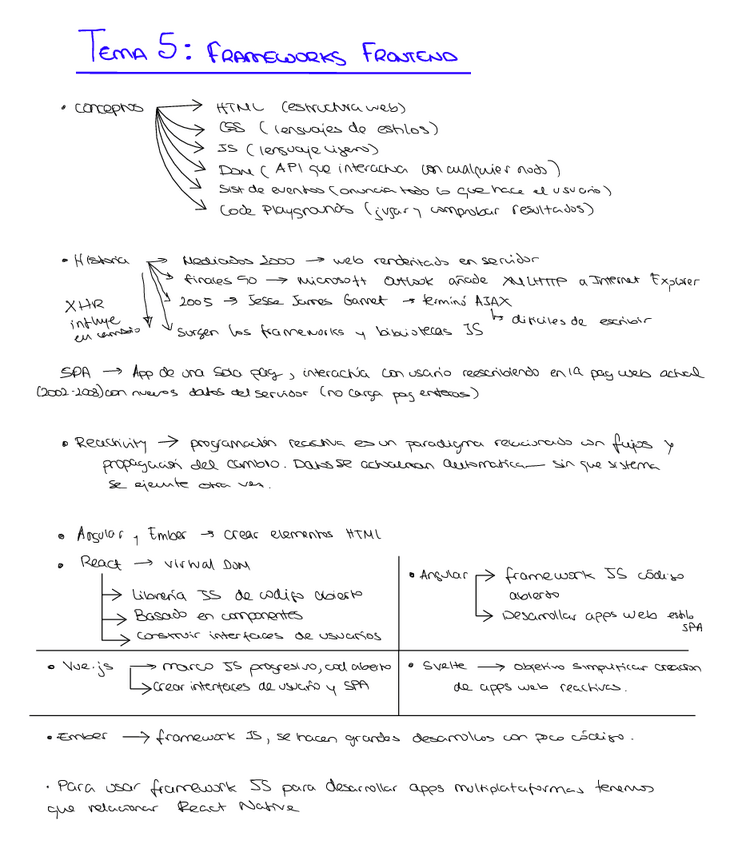 TEMA 5: FRAMEWORKS FRONTEND
• Conceptos → HTML (estructura web)
→ CSS (lenguajes de estilos)
→ JS (lenguaje ligero)
→ DOM (API que interactua con cualquier nodo)
→ Sist de eventos (anuncia todo lo que hace el usuario)
→ Code Playgrounds (jugar y comprobar resultados)
• Historia → Mediados 2000 → web renderizado en servidor
→ finales 90 → Microsoft Outlook añade XMLHTTP a Internet Explorer
→ 2005 → Jesse James Garret → terminó AJAX
XHR
influye
en cambio
→ Surgen los frameworks y bibliotecas JS
↳ difíciles de escribir
SPA → App de una sola pág, interactúa con usuario reescribiendo en la pag web actual
(2002-2003) con nuevos datos del servidor (no carga pag enteras)
• Reactivity → programación reactiva es un paradigma relacionado con flujos y
propagación del cambio. Datos se actualizan automatica— sin que sistema
se ejecute otra vez.
• Angular y Ember → crear elementos HTML
• React → virtual DOM
→ Librería JS de codigo abierto
→ Basado en componentes
→ Construir interfaces de usuarios
• Angular → framework JS código
abierto
→ Desarrollar apps web estilo
SPA
• Vue.js → marco JS progresivo, cod abierto
→ Crear interfaces de usuario y SPA
• Svelte → objetivo simplificar creación
de apps web reactivas.
• Ember → framework JS, se hacen grandes desarrollos con poco código.
• Para usar framework JS para desarrollar apps multiplataformas tenemos
que relacionar React Native